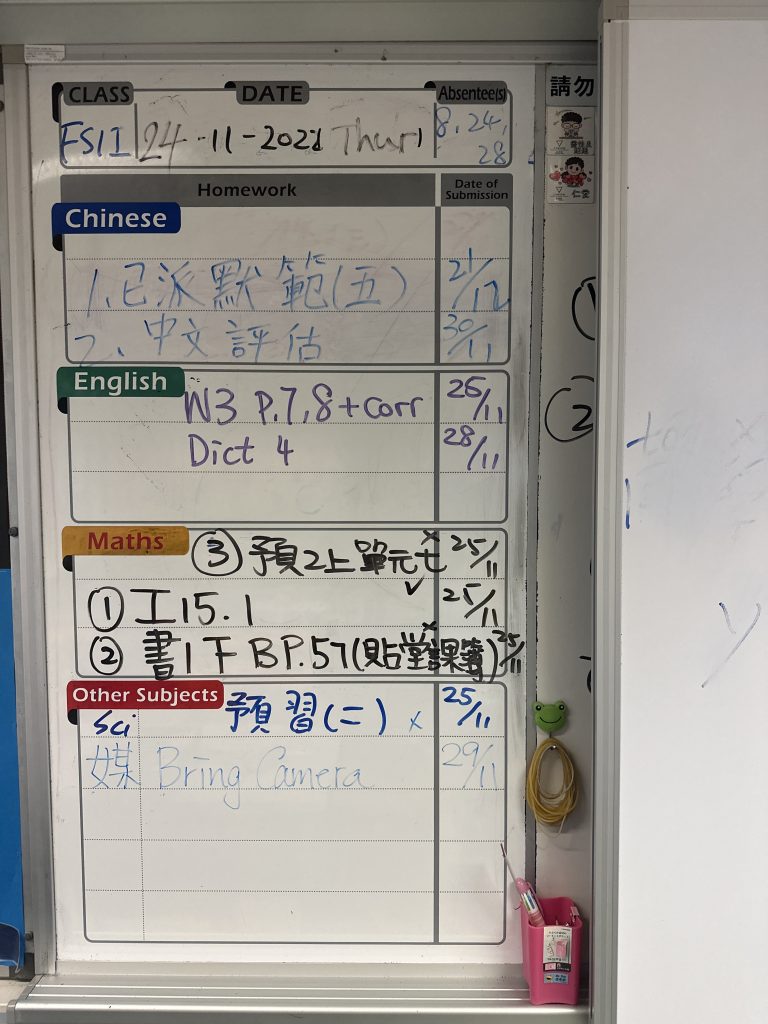 CLASS DATE Absentee(s)
24-11-2022 Thur 8, 24,
28
請勿
Homework Date of Submission
仁愛
Chinese
1. 已派默範(五) 21/12
2. 中文評估 30/11
English
W3 P.7,8+corr 25/11
Dict 4 28/11
Maths
③預2上單元七 x 25/11
①工15.1 ✓ 25/11
②書1下BP.57(貼堂課簿) x 25/11
Other Subjects
Sci 預習(二) x 25/11
媒 Bring Camera 29/11
①
②